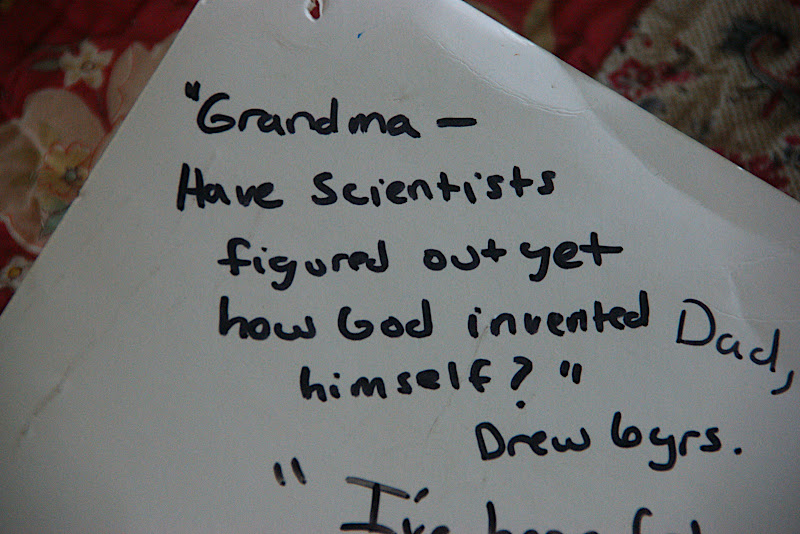 "Grandma —
Have Scientists
figured out yet
how God invented Dad,
himself?"
Drew 6yrs.
" I've